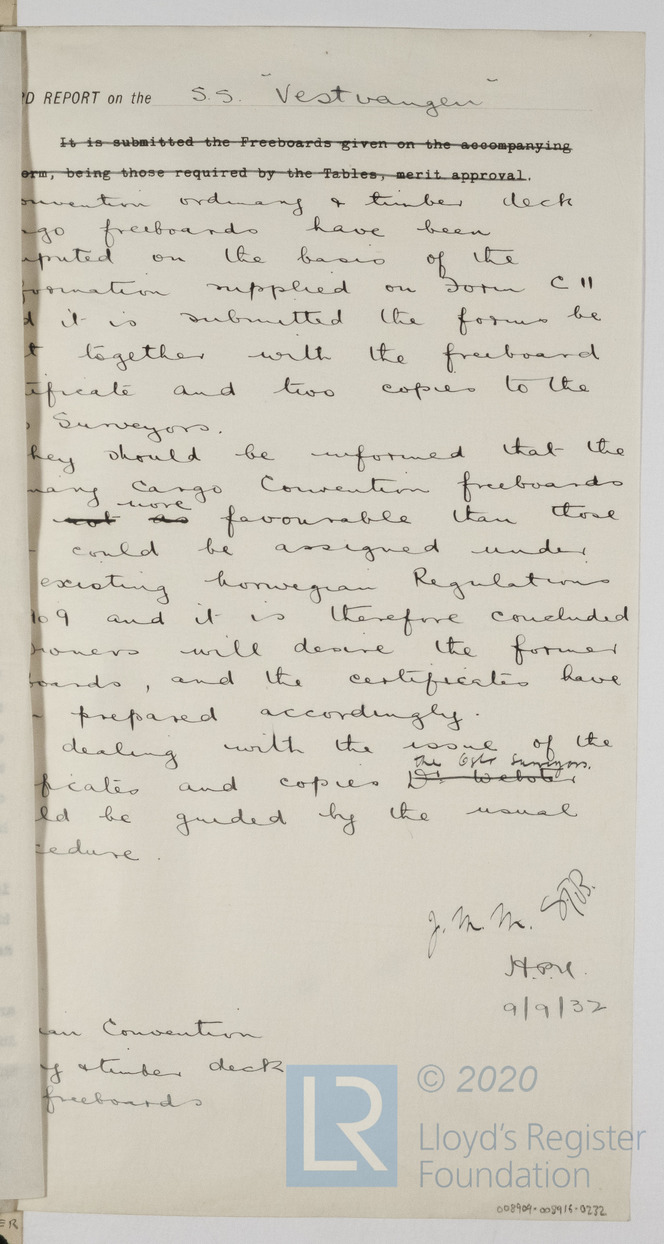 D REPORT on the S.S. "Vestvangen"
It is submitted the Freeboards given on the accompanying
orm, being those required by the Tables, merit approval.
onvention ordinary & timber deck
go freeboards have been
mputed on the basis of the
formation supplied on Form C 11
d it is submitted the forms be
t together with the freeboard
tificate and two copies to the
Surveyors.
hey should be informed that the
inary Cargo Convention freeboards
more
not as favourable than those
could be assigned under
existing Norwegian Regulations
1909 and it is therefore concluded
owners will desire the former
boards, and the certificates have
prepared accordingly.
dealing with the issue of the
the Oslo Surveyors.
ficates and copies Dr Webster
ld be guided by the usual
cedure.
J. M. M.
9/9/32
an Convention
y & timber deck
freeboards
LR
© 2020
Lloyd's Register
Foundation
008909-008915-0232
ER